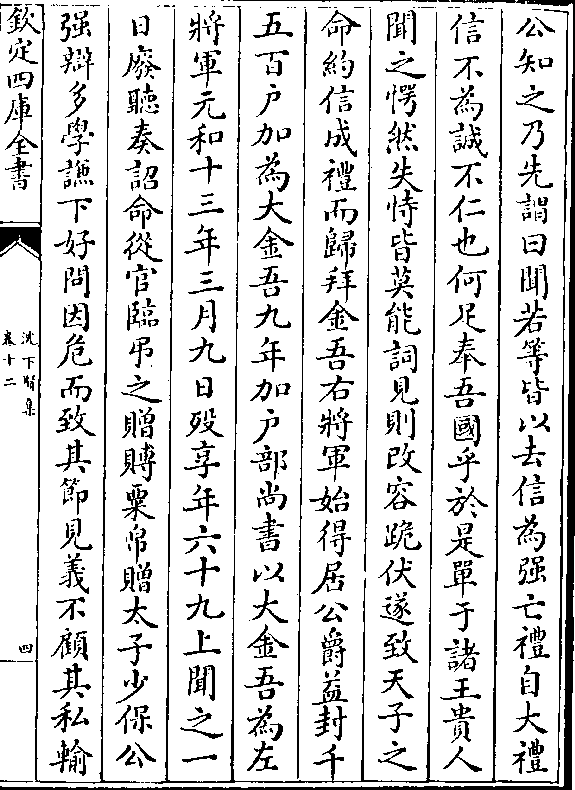 公知之乃先謂曰聞若等皆以去信為强亡禮自大禮
信不為誠不仁也何足奉吾國乎於是單于諸王貴人
聞之愕然失恃皆莫能詞見則改容跪伏遂致天子之
命約信成禮而歸拜金吾右將軍始得居公爵益封千
五百户加為大金吾九年加户部尚書以大金吾為左
將軍元和十三年三月九日殁享年六十九上聞之一
日廢聽奏詔命從官臨弔之贈賻粟帛贈太子少保公
强辯多學謙下好問因危而致其節見義不顧其私輸
欽定四庫全書
沈下賢集
卷十二
四